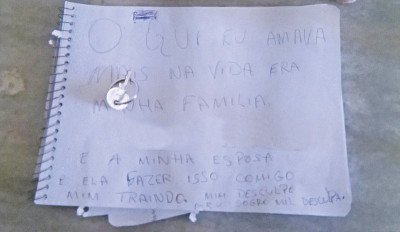 O QUI EU AMAVA
MAIS NA VIDA ERA
MINHA FAMILIA.
E A MINHA ESPOSA
E ELA FAZER ISSO COMIGO
MIM TRAINDO. MIM DESCULPE
MEU SOGRO MIL DESCULPA.